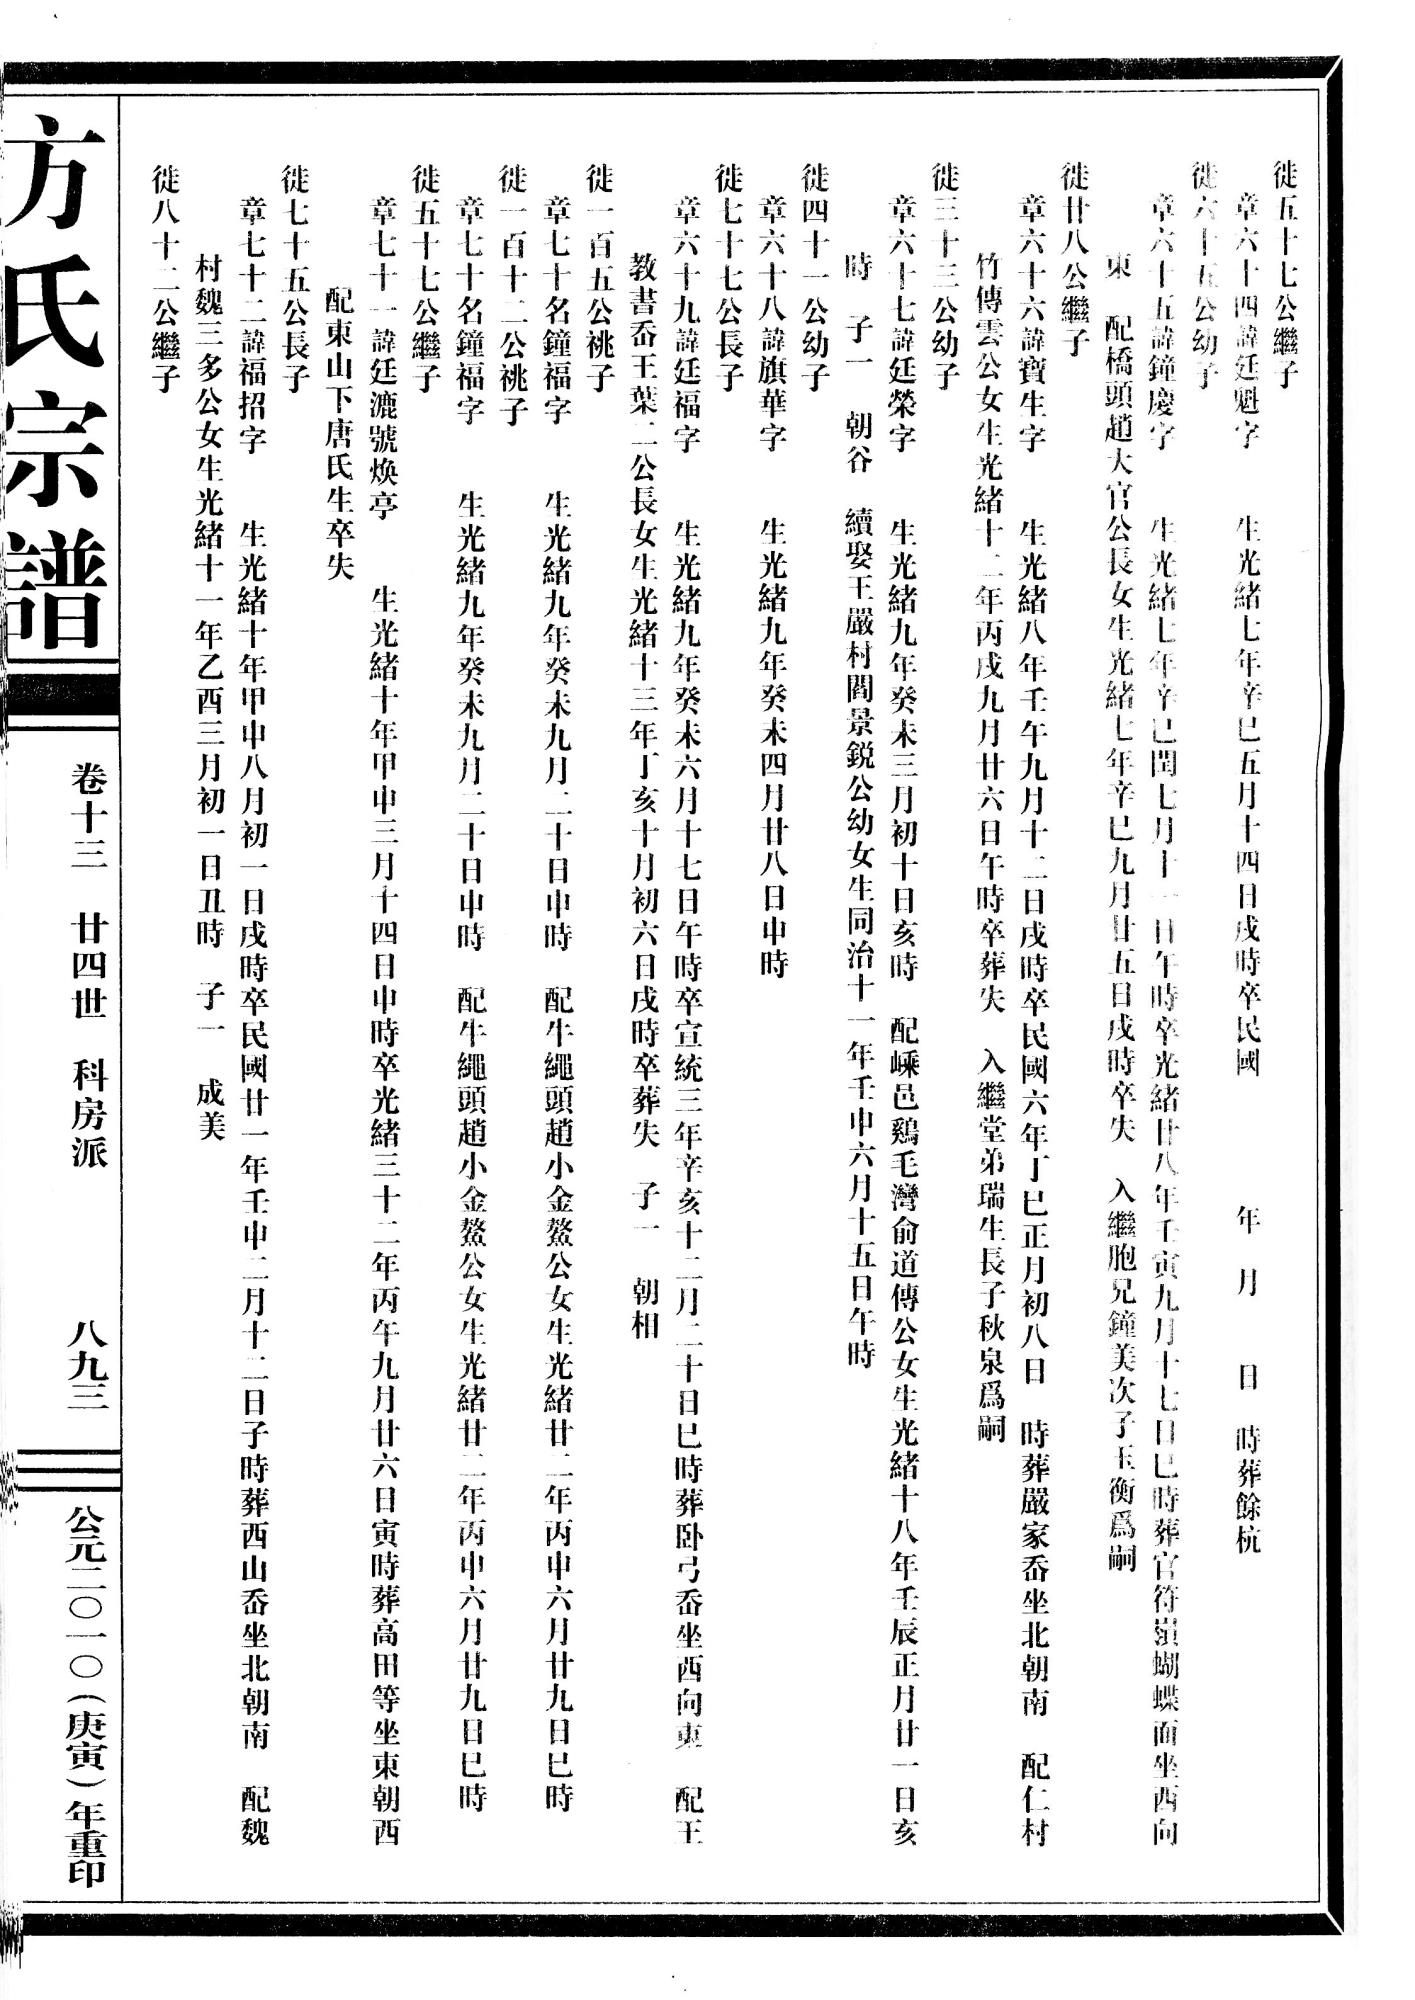 徙五十七公繼子
章六十四諱廷魁字 生光緒七年辛巳五月十四日戌時卒民國 年 月 日 時葬餘杭
徙六十五公幼子
章六十五諱鐘慶字 生光緒七年辛巳閏七月十一日午時卒光緒廿八年壬寅九月十七日巳時葬官符嶺蝴蝶面坐西向
東 配橋頭趙大官公長女生光緒七年辛巳九月廿五日戌時卒失 入繼胞兄鐘美次子玉衡爲嗣
徙廿八公繼子
章六十六諱寶生字 生光緒八年壬午九月十二日戌時卒民國六年丁巳正月初八日 時葬嚴家岙坐北朝南 配仁村
竹傳雲公女生光緒十二年丙戌九月廿六日午時卒葬失 入繼堂弟瑞生長子秋泉爲嗣
徙三十三公幼子
章六十七諱廷榮字 生光緒九年癸未三月初十日亥時 配嵊邑鷄毛灣俞道傳公女生光緒十八年壬辰正月廿一日亥
時 子一 朝谷 續娶王嚴村閻景鋭公幼女生同治十一年壬申六月十五日午時
徙四十一公幼子
章六十八諱旗華字 生光緒九年癸未四月廿八日申時
徙七十七公長子
章六十九諱廷福字 生光緒九年癸未六月十七日午時卒宣統三年辛亥十二月二十日巳時葬卧弓岙坐西向東 配王
教書岙王葉二公長女生光緒十三年丁亥十月初六日戌時卒葬失 子一 朝相
徙一百五公祧子
章七十名鐘福字 生光緒九年癸未九月二十日申時 配牛繩頭趙小金鰲公女生光緒廿二年丙申六月廿九日巳時
徙一百十二公祧子
章七十名鐘福字 生光緒九年癸未九月二十日申時 配牛繩頭趙小金鰲公女生光緒廿二年丙申六月廿九日巳時
徙五十七公繼子
章七十一諱廷漉號焕亭 生光緒十年甲申三月十四日申時卒光緒三十二年丙午九月廿六日寅時葬高田等坐東朝西
配東山下唐氏生卒失
徙七十五公長子
章七十二諱福招字 生光緒十年甲申八月初一日戌時卒民國廿一年壬申二月十二日子時葬西山岙坐北朝南 配魏
村魏三多公女生光緒十一年乙酉三月初一日丑時 子一 成美
徙八十二公繼子
方氏宗譜
卷十三 廿四世 科房派 八九三
公元二〇一〇(庚寅)年重印